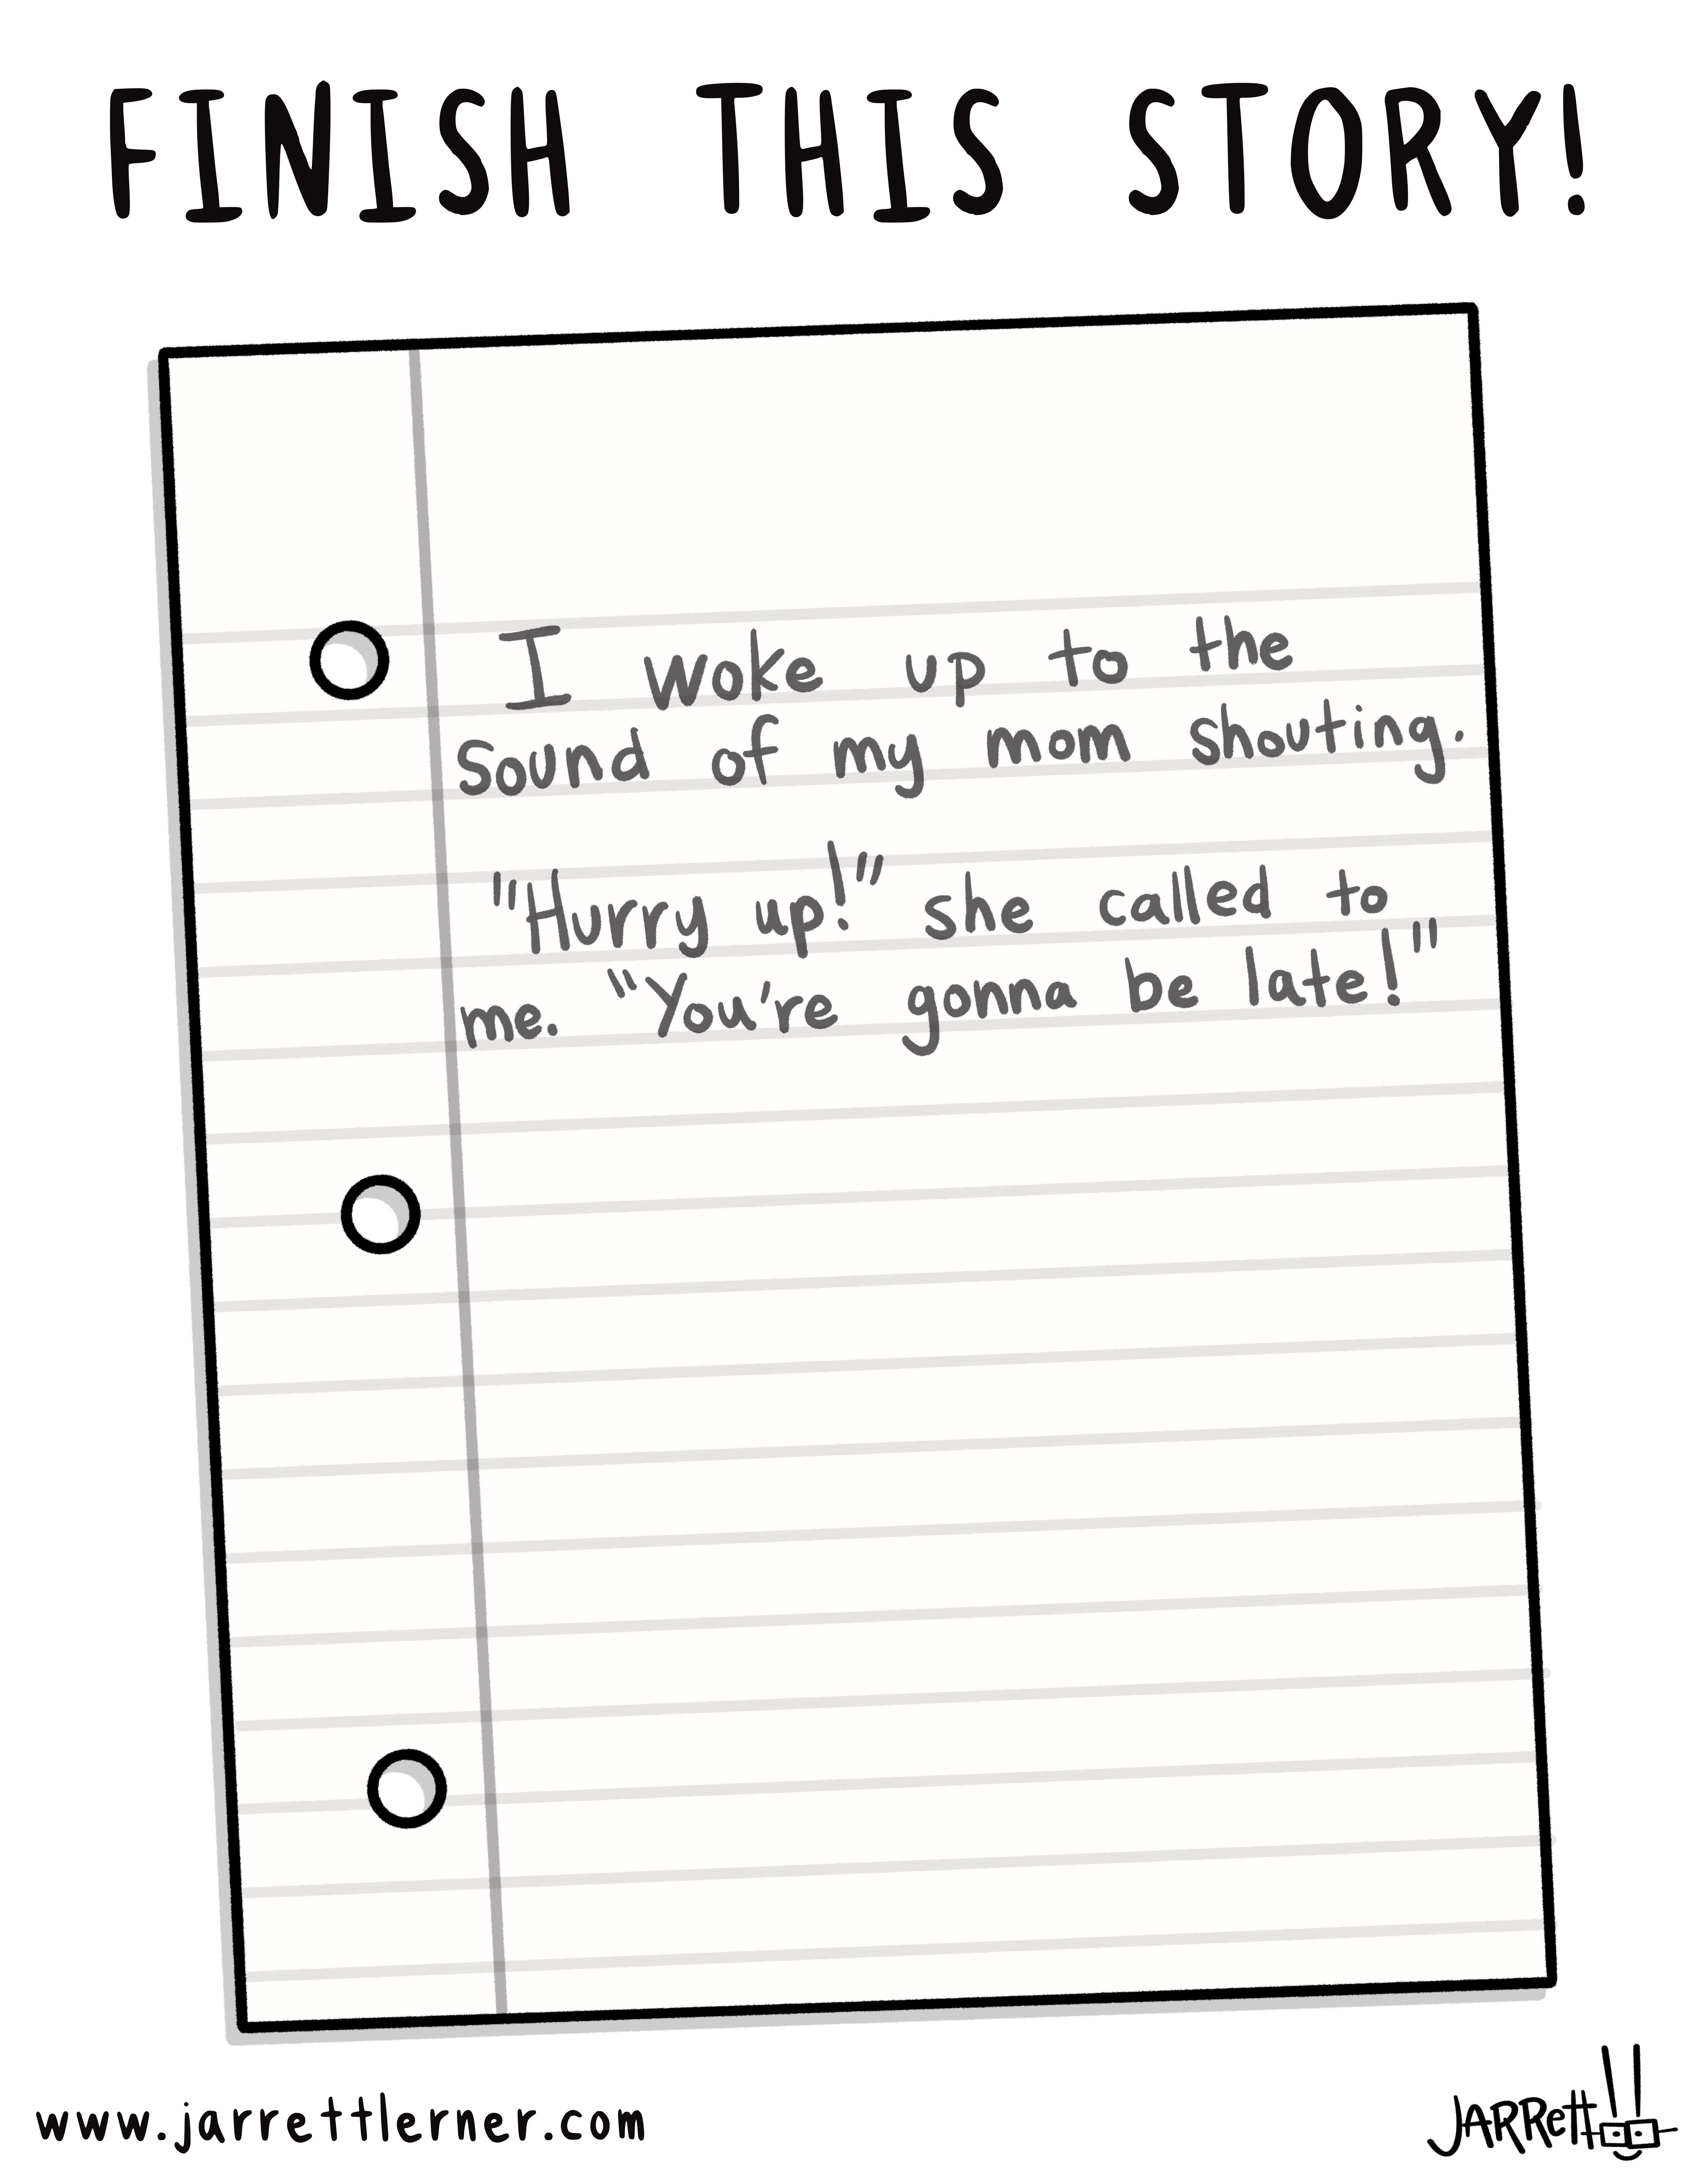 FINISH THIS STORY!
I woke up to the
sound of my mom shouting.
"Hurry up!" she called to
me. "You're gonna be late!"
www.jarrettlerner.com
JARRett!!